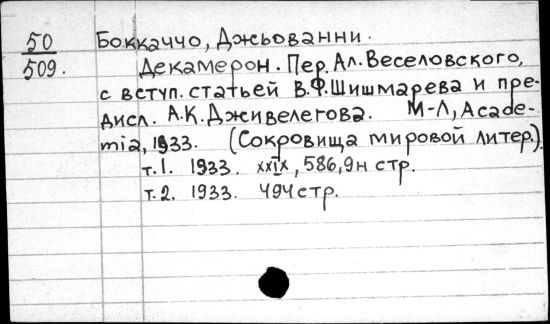 50 Боккаччо, Джьованни.
509. Декамерон. Пер. Ал. Веселовского,
с вступ. статьей В.Ф. Шишмарева и пре-
дисл. А.К. Дживелегова. М-Л, Acade-
mia, 1933. (Сокровища мировой литер.).
т.1. 1933. XXIX, 586, 9н стр.
т.2. 1933. 494 стр.